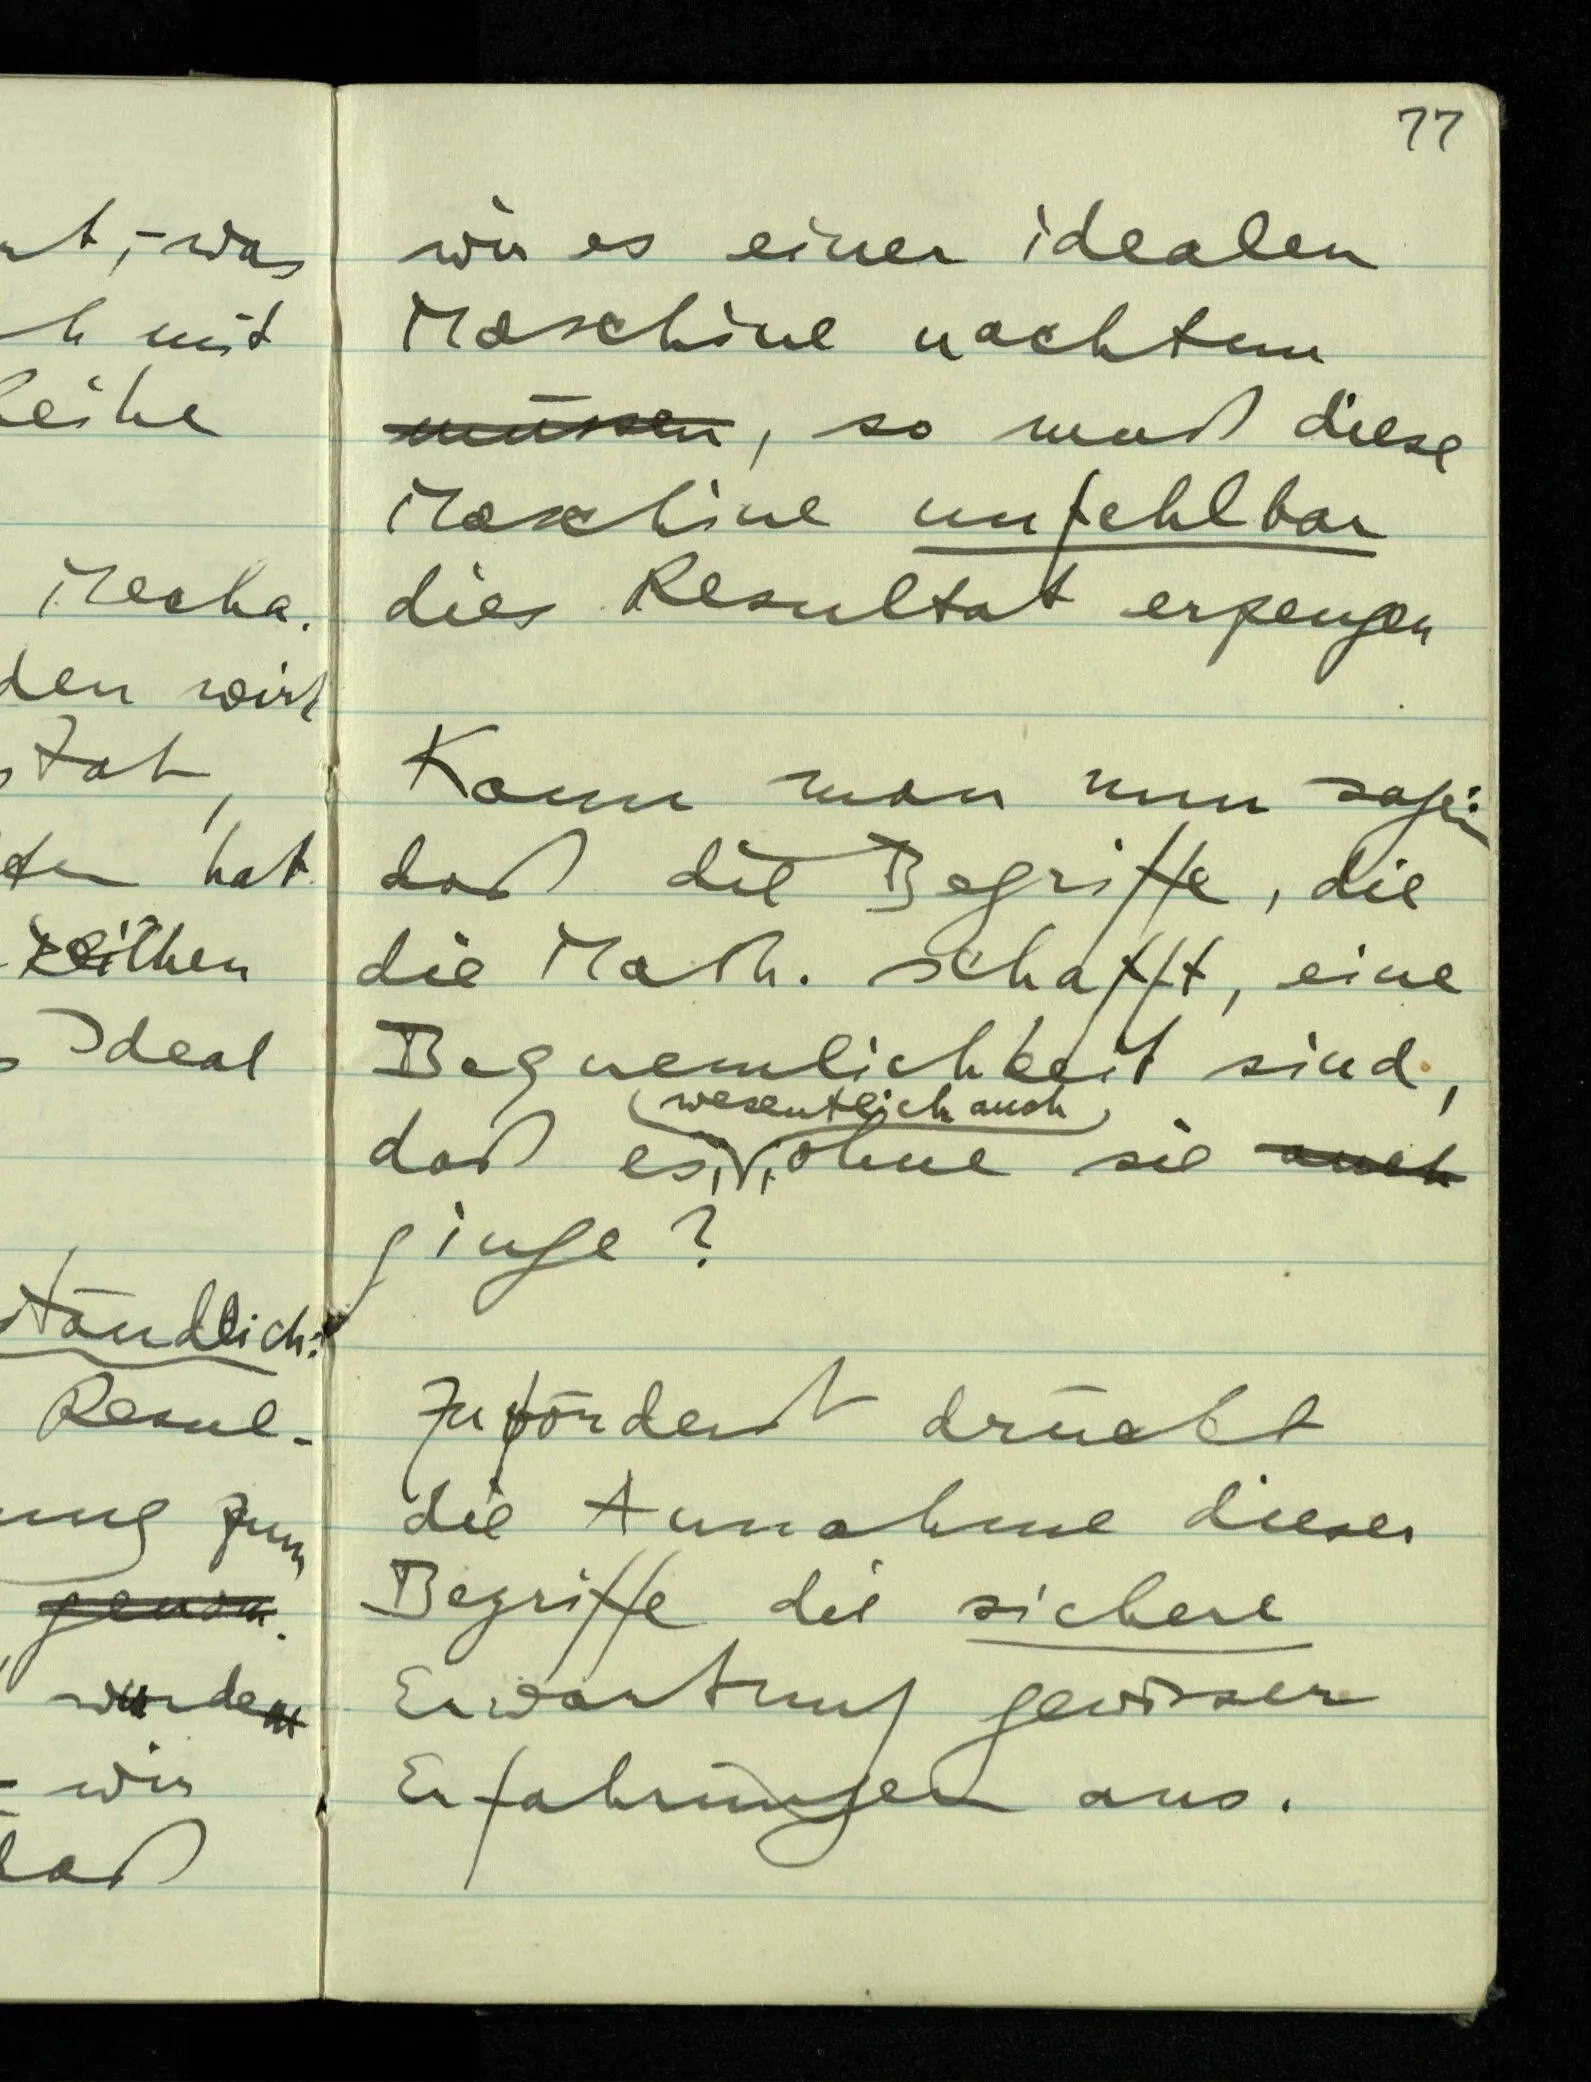 77
wir es einer idealen
Maschine nachtun
müssen, so muß diese
Maschine unfehlbar
dies Resultat erzeugen
Kann man nun sagen:
daß die Begriffe, die
die Math. schafft, eine
Bequemlichkeit sind,
wesentlich auch
daß es, ohne sie auch
ginge?
Zuförderst drückt
die Annahme dieser
Begriffe die sichere
Erwartung gewisser
Erfahrungen aus.
t, – was
h mit
Reihe
Mecha.
den wird
hat
Ideal
ständlich:
Resul-
ung zum
genom.
wurden
– wir
daß